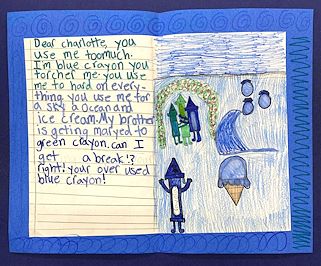 Dear charlotte, you
use me toomuch.
I'm blue crayon you
torcher me. you use
me to hard on every-
thing you use me for
a sky a Ocean and
ice cream. My brother
is geting maryed to
green crayon. can I
get a break!?
right! your over used
blue crayon!